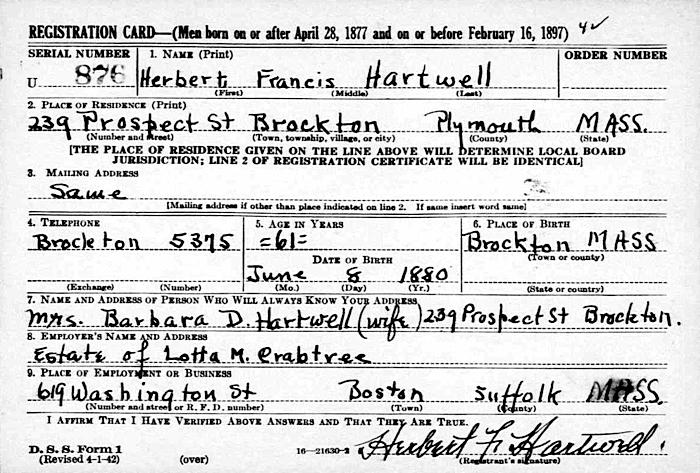 REGISTRATION CARD—(Men born on or after April 28, 1877 and on or before February 16, 1897) 42
SERIAL NUMBER 1. NAME (Print) ORDER NUMBER
U 876 Herbert Francis Hartwell
(First) (Middle) (Last)
2. PLACE OF RESIDENCE (Print)
239 Prospect St Brockton Plymouth MASS.
(Number and street) (Town, township, village, or city) (County) (State)
[THE PLACE OF RESIDENCE GIVEN ON THE LINE ABOVE WILL DETERMINE LOCAL BOARD
JURISDICTION; LINE 2 OF REGISTRATION CERTIFICATE WILL BE IDENTICAL]
3. MAILING ADDRESS
Same
[Mailing address if other than place indicated on line 2. If same insert word same]
4. TELEPHONE 5. AGE IN YEARS 6. PLACE OF BIRTH
Brockton 5375 =61= Brockton MASS
(Town or county)
DATE OF BIRTH
June 8 1880
(Exchange) (Number) (Mo.) (Day) (Yr.) (State or country)
7. NAME AND ADDRESS OF PERSON WHO WILL ALWAYS KNOW YOUR ADDRESS
Mrs. Barbara D. Hartwell (wife) 239 Prospect St Brockton.
8. EMPLOYER'S NAME AND ADDRESS
Estate of Lotta M. Crabtree
9. PLACE OF EMPLOYMENT OR BUSINESS
619 Washington St Boston Suffolk MASS.
(Number and street or R. F. D. number) (Town) (County) (State)
I AFFIRM THAT I HAVE VERIFIED ABOVE ANSWERS AND THAT THEY ARE TRUE.
D. S. S. Form 1
(Revised 4-1-42) (over) 16—21630-2 Herbert F. Hartwell
(Registrant's signature)